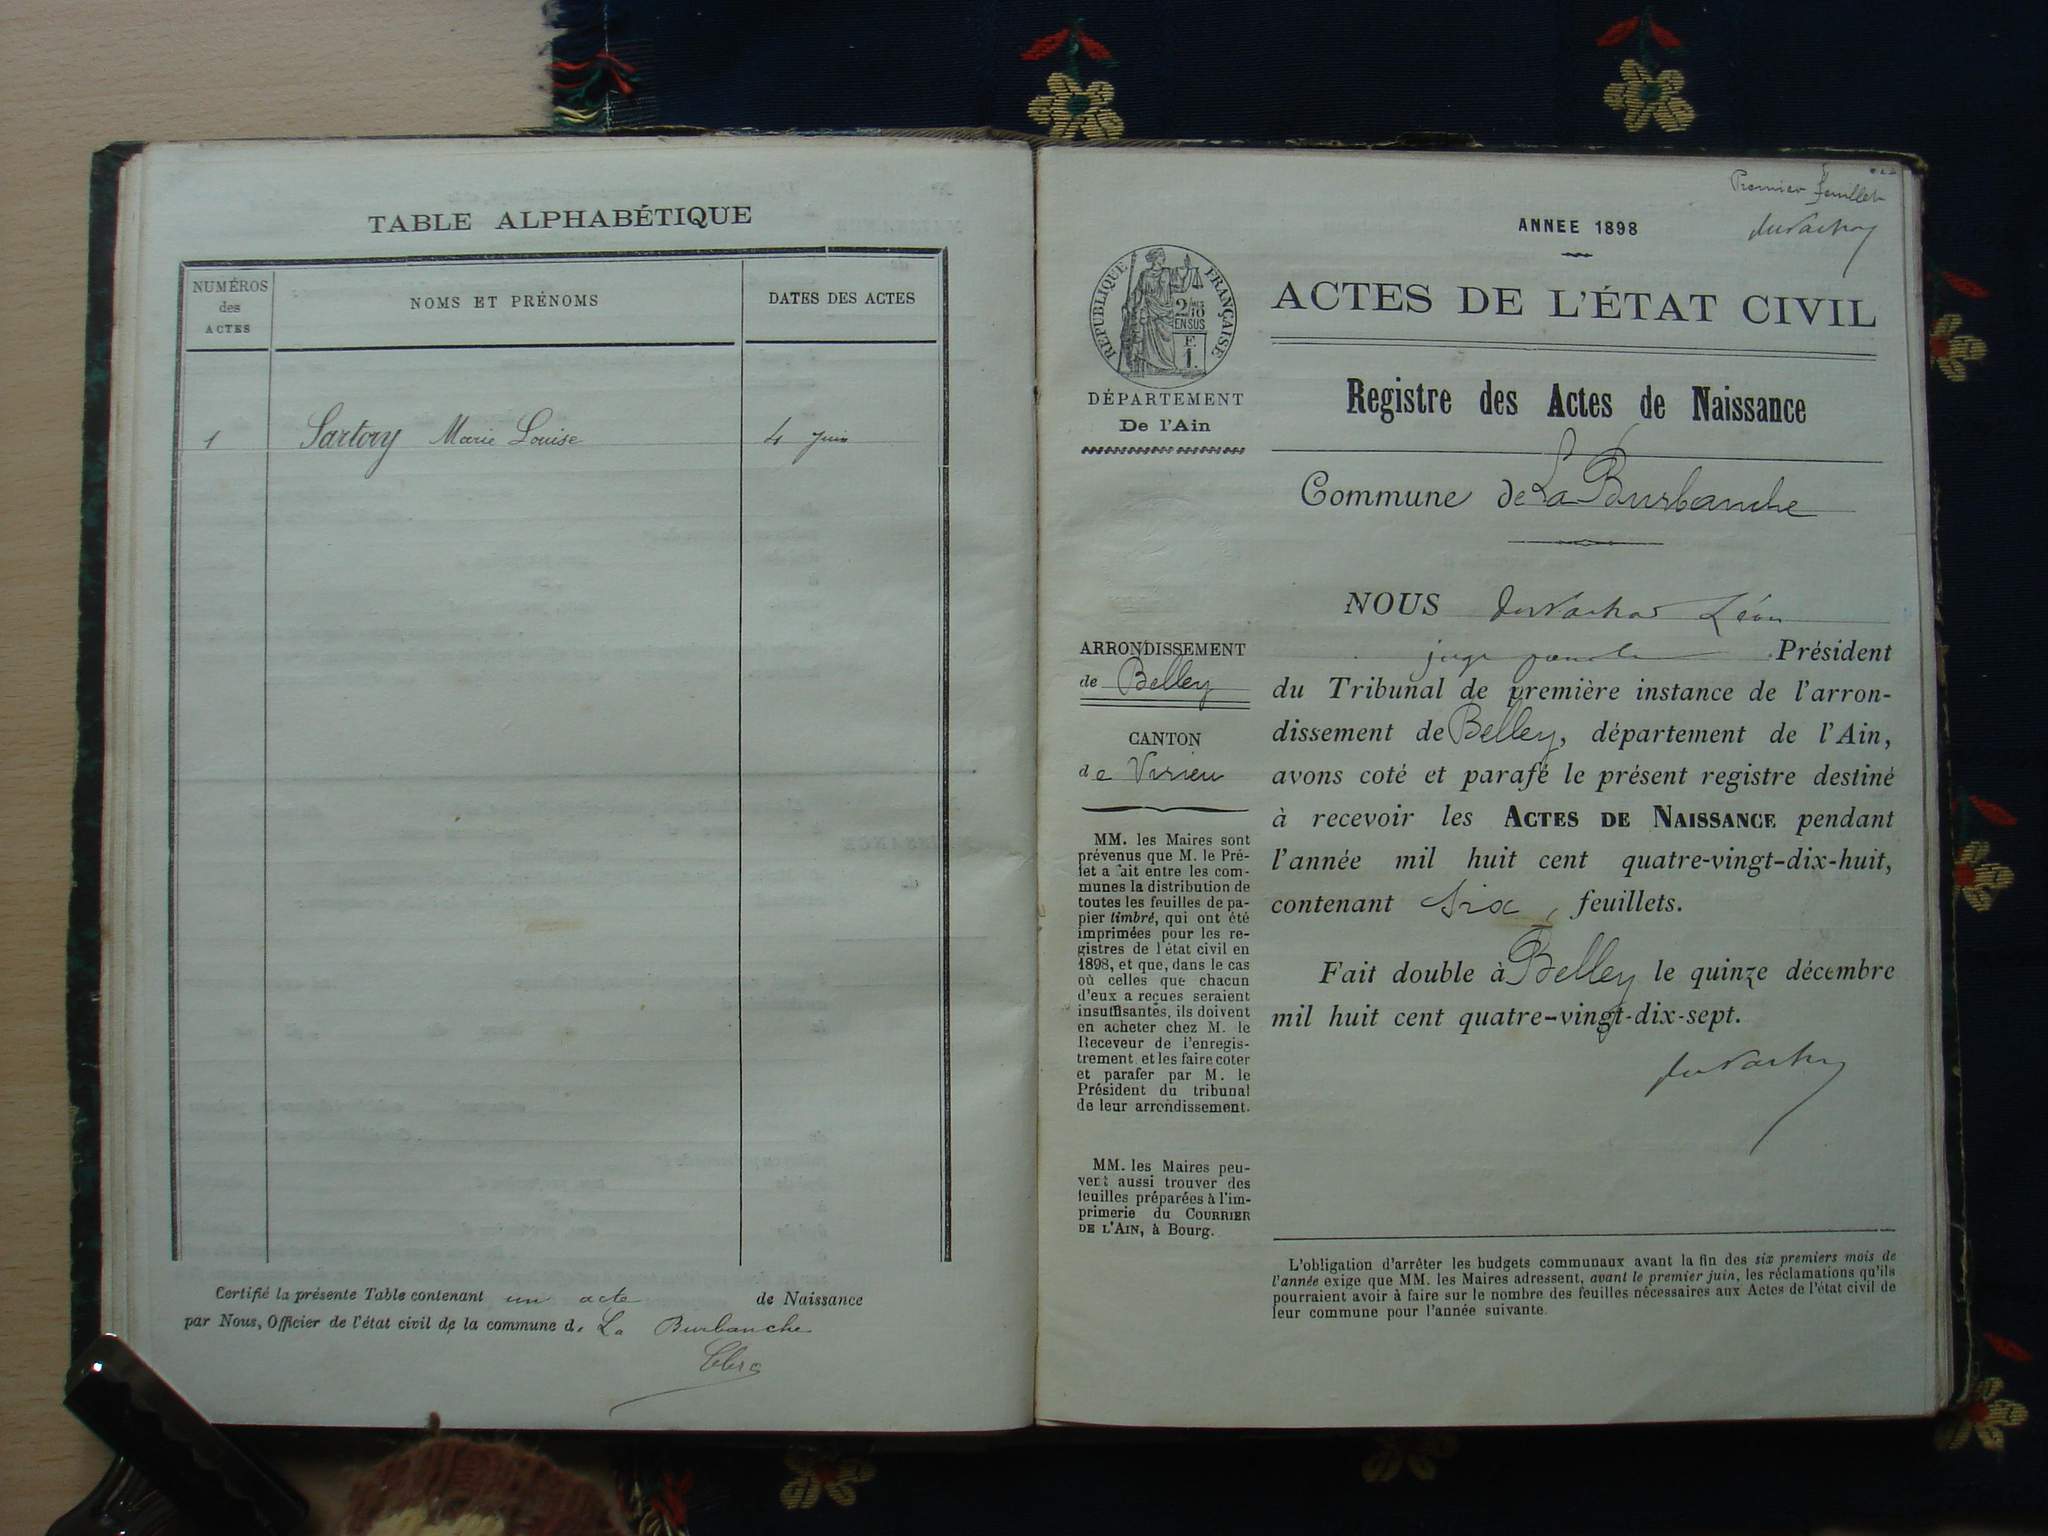 TABLE ALPHABÉTIQUE
NUMÉROS
des
ACTES
NOMS ET PRÉNOMS
DATES DES ACTES
1 Sartory Marie Louise 4 juin
Certifié la présente Table contenant un acte de Naissance
par Nous, Officier de l'état civil de la commune de La Burbanche
Clerc
Premier feuillet
ANNEE 1898
RÉPUBLIQUE FRANÇAISE
2/10
EN SUS
F.
1.
ACTES DE L'ÉTAT CIVIL
DÉPARTEMENT
De l'Ain
Registre des Actes de Naissance
Commune de La Burbanche
NOUS Léon
juge Président
du Tribunal de première instance de l'arron-
dissement de Belley, département de l'Ain,
avons coté et parafé le présent registre destiné
à recevoir les ACTES DE NAISSANCE pendant
l'année mil huit cent quatre-vingt-dix-huit,
contenant six feuillets.
Fait double à Belley le quinze décembre
mil huit cent quatre-vingt-dix-sept.
ARRONDISSEMENT
de Belley
CANTON
de Virieu
MM. les Maires sont
prévenus que M. le Pré-
fet a fait entre les com-
munes la distribution de
toutes les feuilles de pa-
pier timbré, qui ont été
imprimées pour les re-
gistres de l'état civil en
1898, et que, dans le cas
où celles que chacun
d'eux a reçues seraient
insuffisantes, ils doivent
en acheter chez M. le
Receveur de l'enregis-
trement et les faire coter
et parafer par M. le
Président du tribunal
de leur arrondissement.
MM. les Maires peu-
vent aussi trouver des
feuilles préparées à l'im-
primerie du COURRIER
DE L'AIN, à Bourg.
L'obligation d'arrêter les budgets communaux avant la fin des six premiers mois de
l'année exige que MM. les Maires adressent, avant le premier juin, les réclamations qu'ils
pourraient avoir à faire sur le nombre des feuilles nécessaires aux Actes de l'état civil de
leur commune pour l'année suivante.